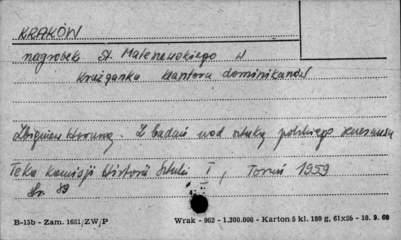 KRAKÓW
nagrobek St. Maleszewskiego w
krużganku klasztoru dominikanów
Zbigniew Hornung. Z badań nad sztuką polskiego renesansu
Teka Komisji Historii Sztuki I, Toruń 1959
str. 89
B-15b - Zam. 1681/ZW/P Wrak - 962 - 1.300.000 - Karton 5 kl. 180 g, 61x86 - 10. 9. 60